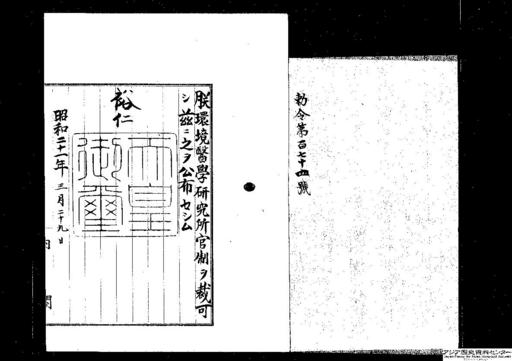 勅令第百七十四號
朕環境醫學研究所官制ヲ裁可
シ茲ニ之ヲ公布セシム
裕仁
天皇御璽
昭和二十一年三月二十九日
内閣
アジア歴史資料センター